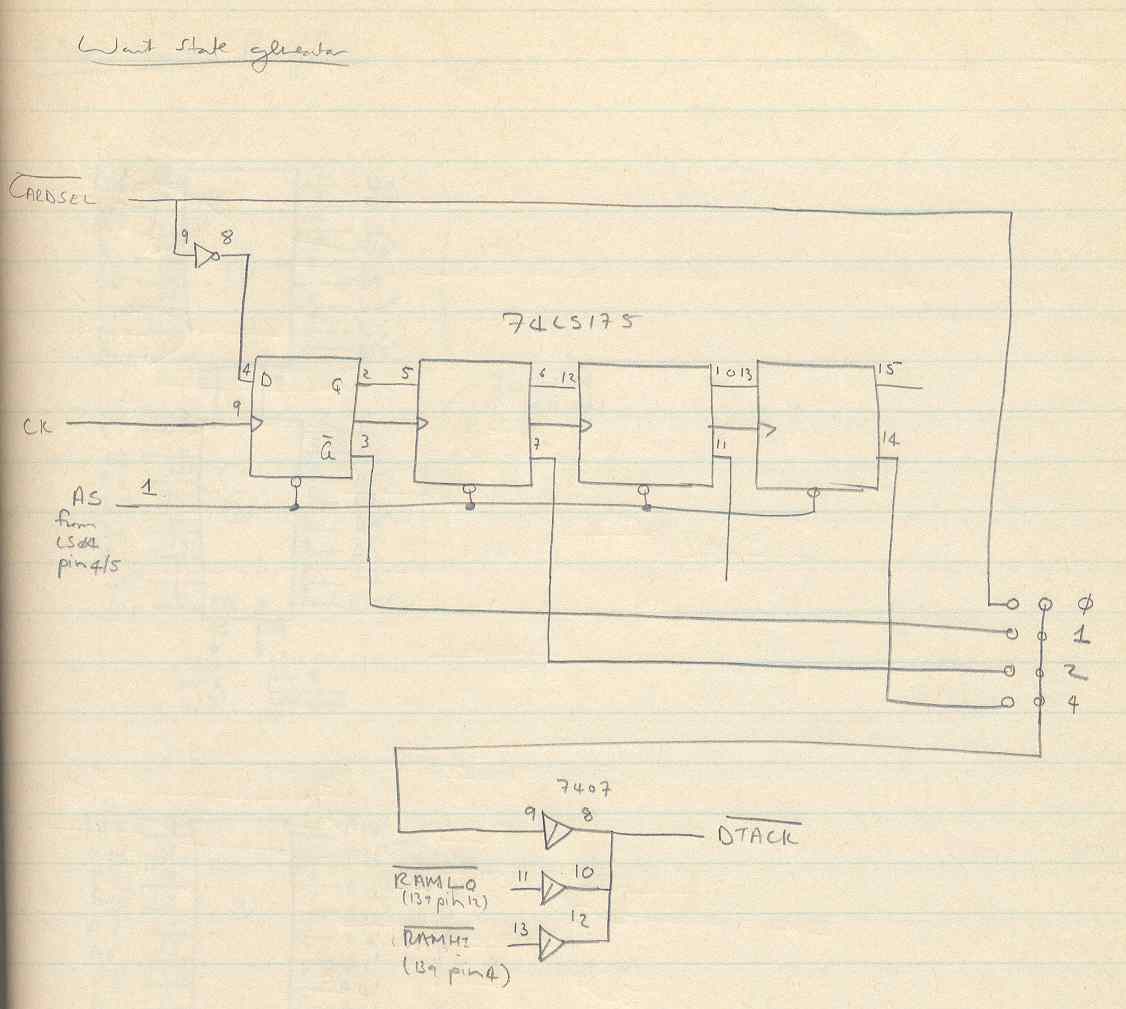 Wait state generator
CARDSEL
9 8
74LS175
4 D Q 2 5 6 12 10 13 15
9
CK
Q 3 7 11 14
AS 1
from
LS04
pin 4/5
0
1
2
4
7407
9 8
DTACK
RAMLO 11 10
(139 pin 12)
12
RAMHI 13
(139 pin 4)